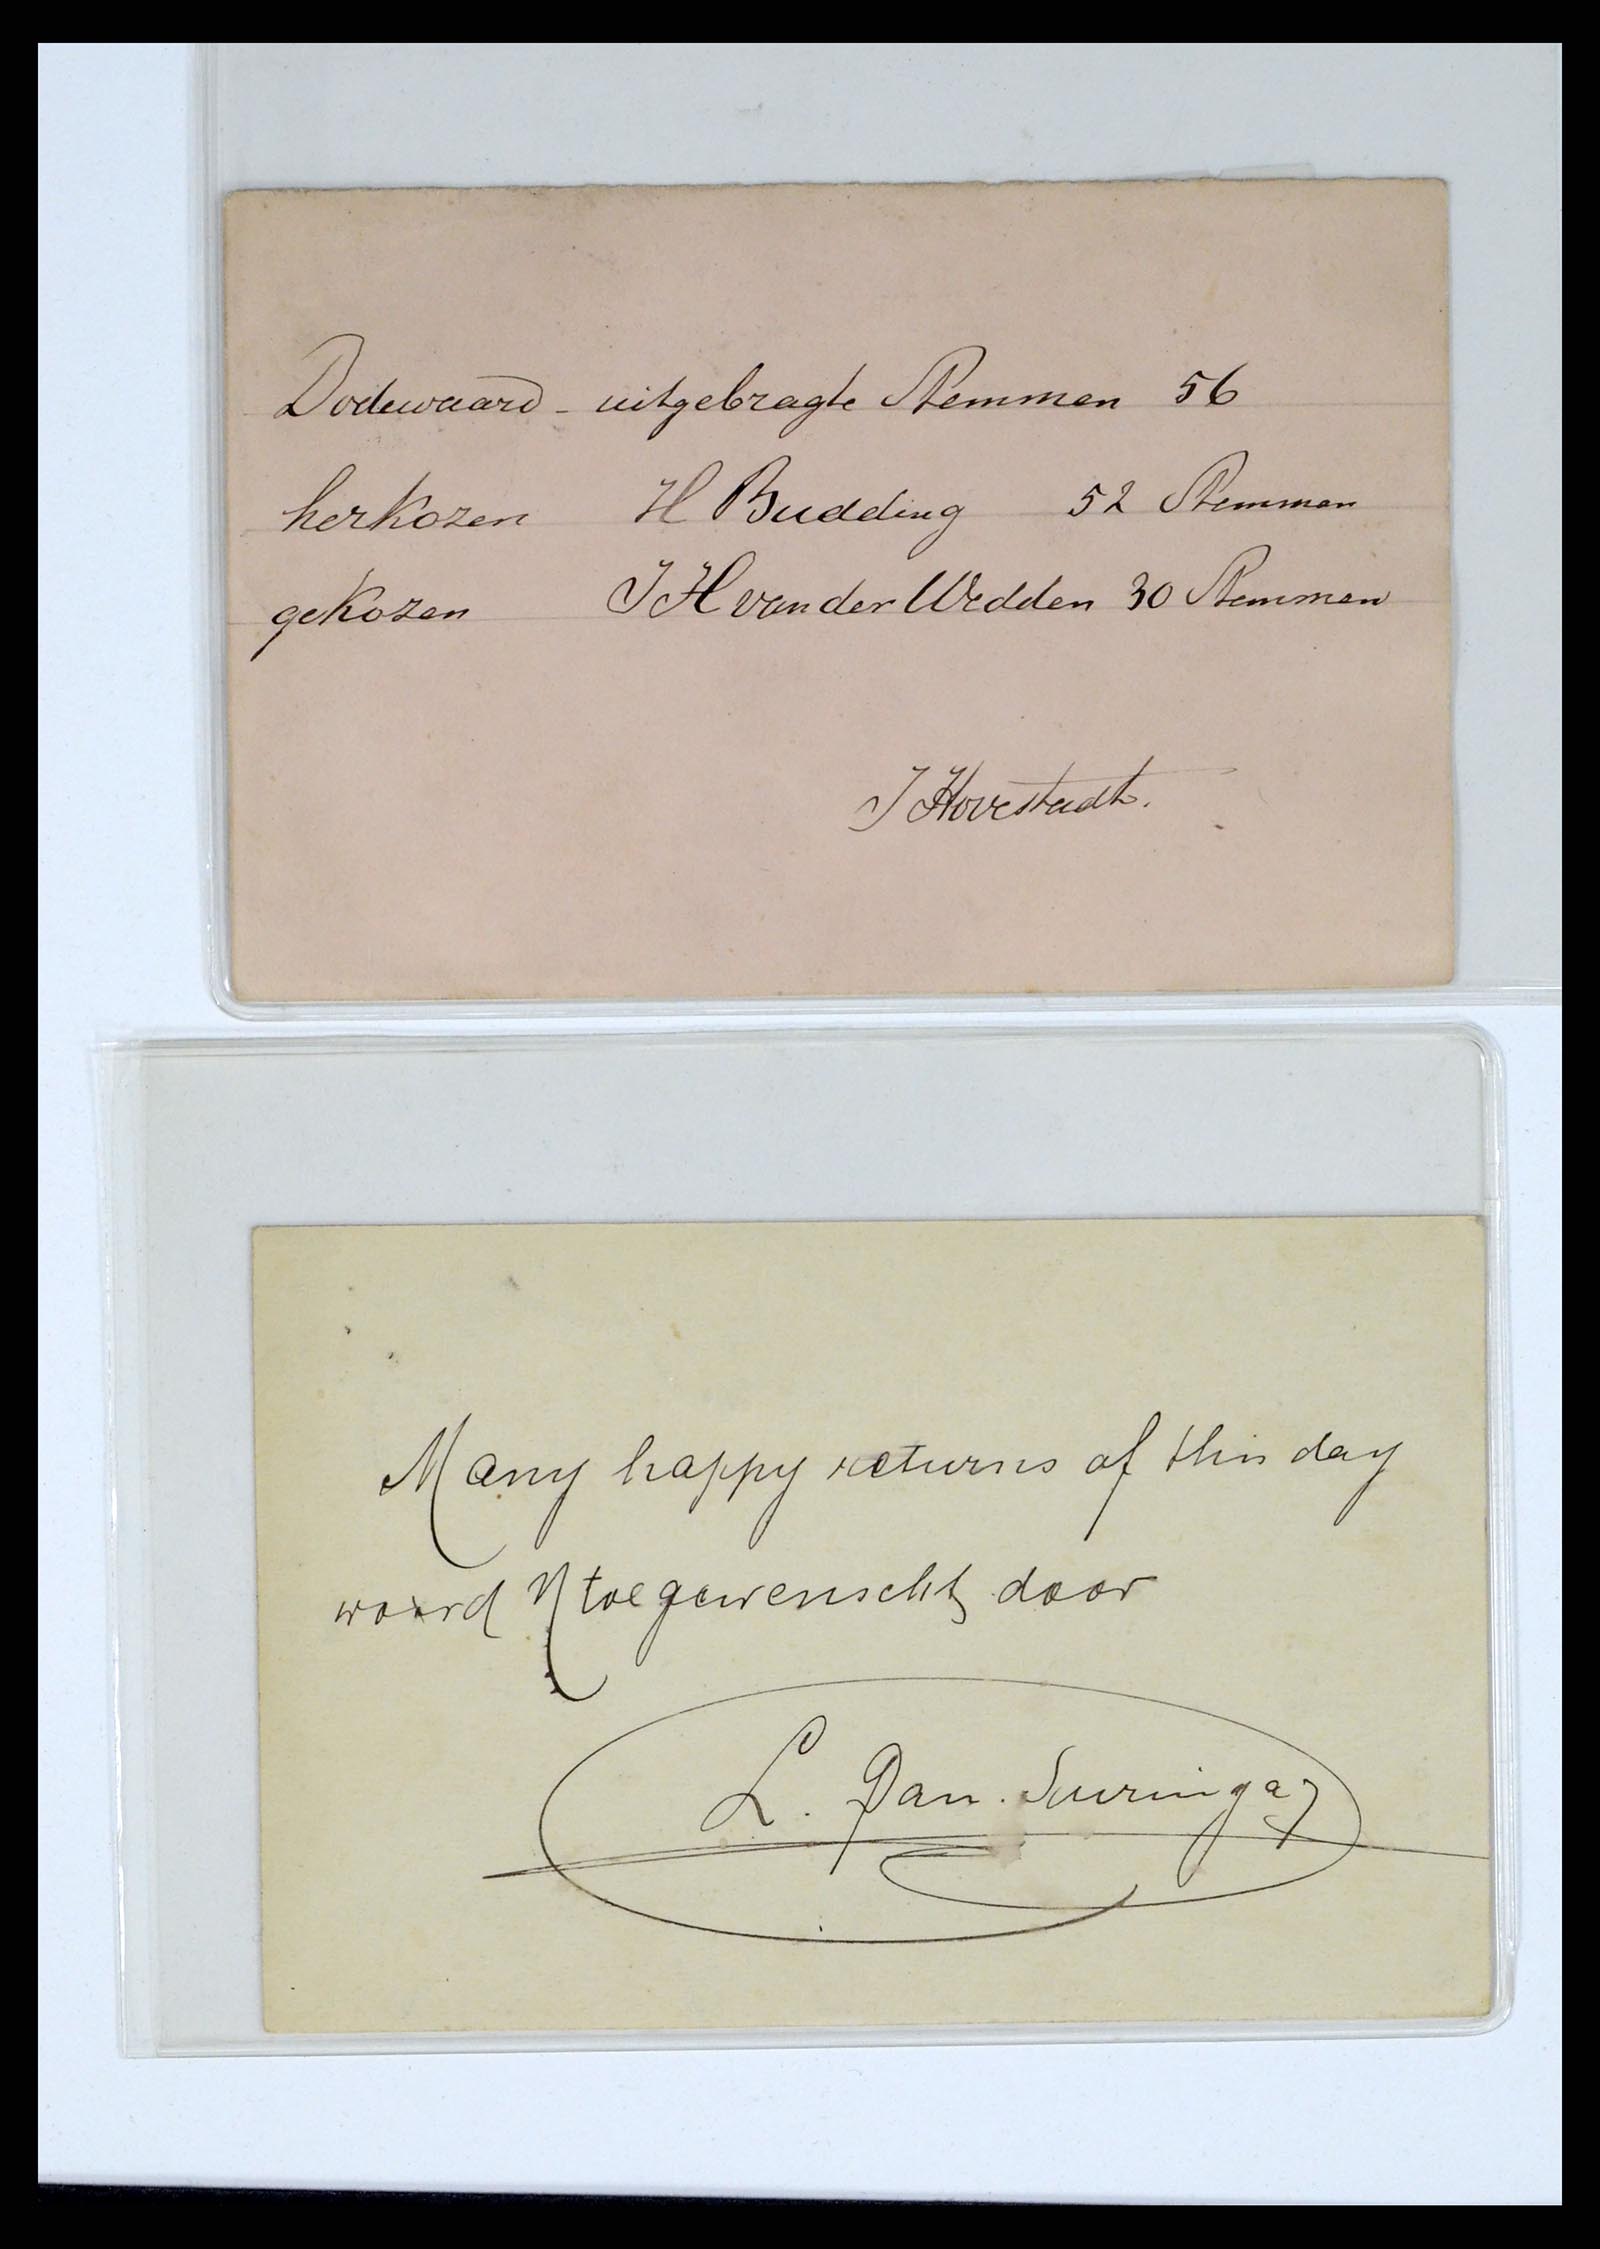 Dodewaard - uitgebragte Stemmen 56
herkozen H Budding 52 Stemmen
gekozen J H van der Wedden 30 Stemmen
J Hovestadt.
Many happy returns of this day
word U toegewenscht door
L. Pan. Suringa